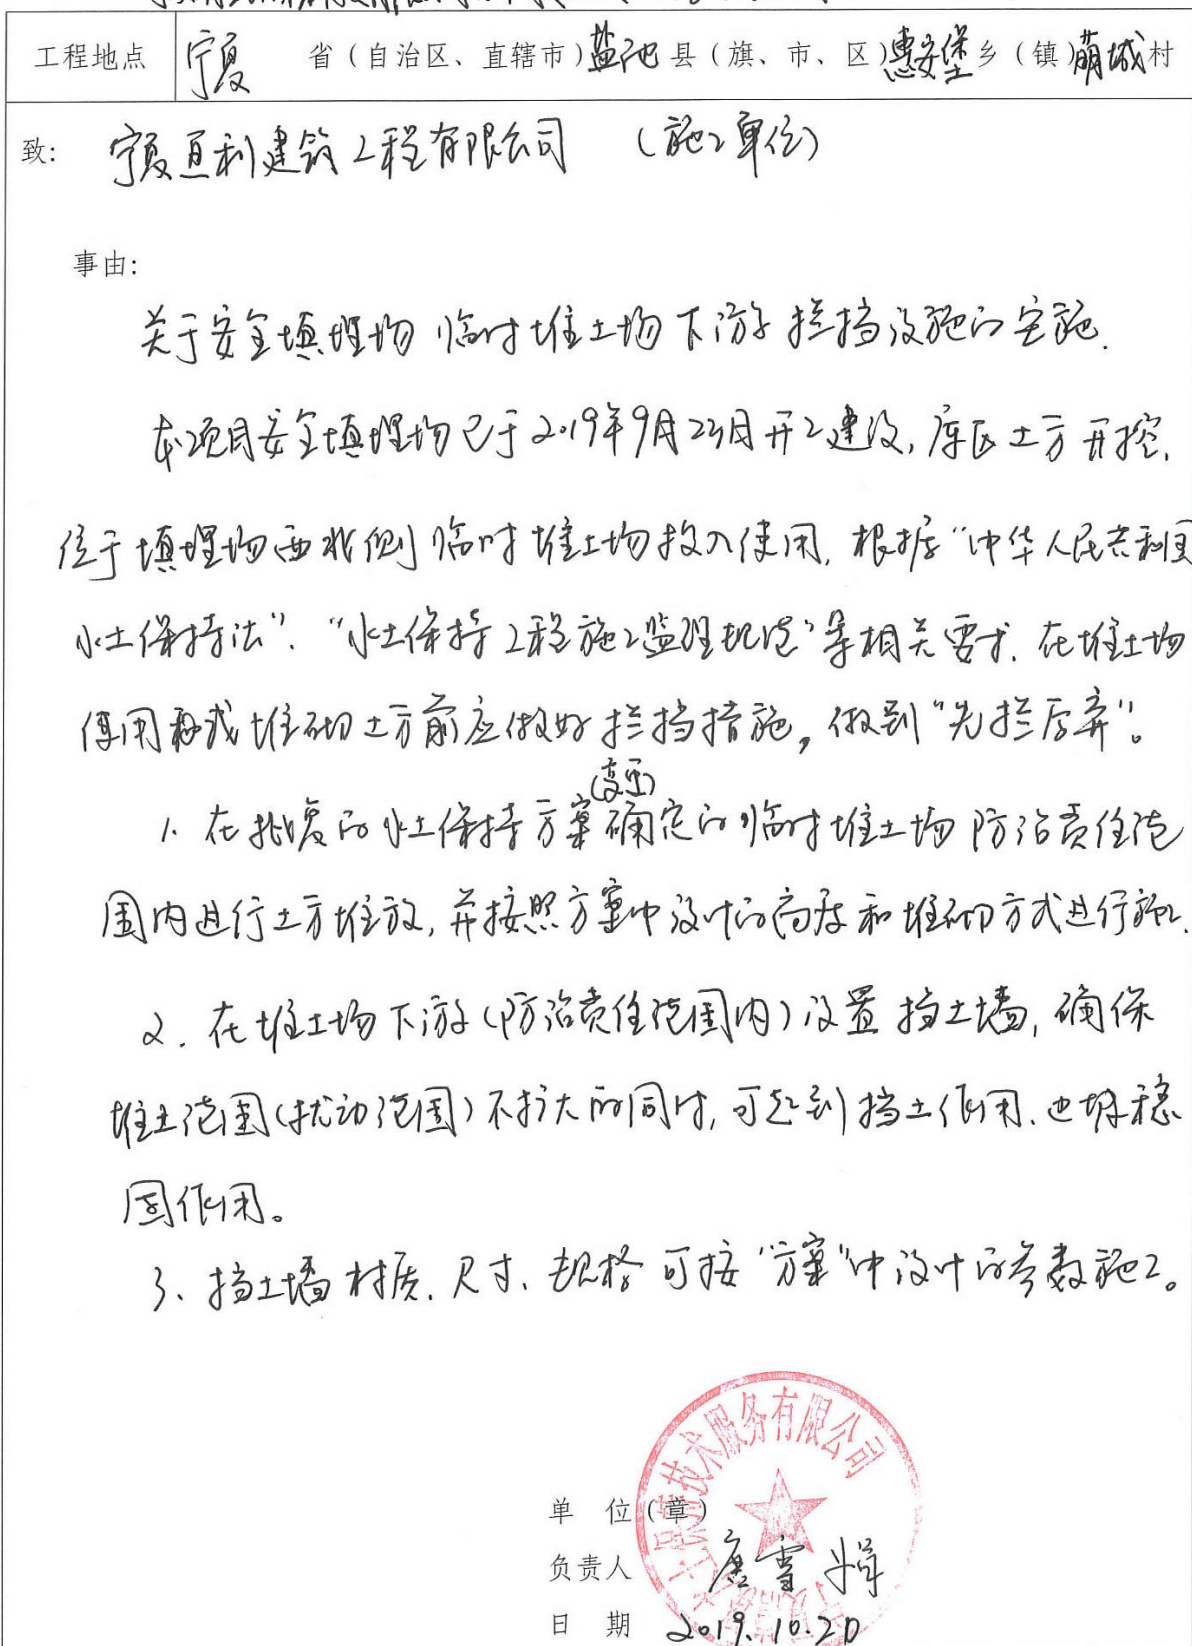 工程地点 宁夏 省（自治区、直辖市）盐池县（旗、市、区）惠安堡乡（镇）萌城村
致： 宁夏亘利建筑工程有限公司 （施工单位）
事由：
关于安全填埋场临时堆土场下游拦挡设施的实施.
本项目安全填埋场已于2019年9月23日开工建设,库区土方开挖,
位于填埋场西北侧临时堆土场投入使用,根据“中华人民共和国
水土保持法”.“水土保持工程施工监理规范”等相关要求.在堆土场
使用或堆砌土方前应做好拦挡措施,做到“先拦后弃”。
(变更)
1、在批复的水土保持方案确定的临时堆土场防治责任范
围内进行土方堆放,并按照方案中设计的高度和堆砌方式进行施工.
2.在堆土场下游(防治责任范围内)设置挡土墙,确保
堆土范围(扰动范围)不扩大的同时,可起到挡土作用.边坡稳
固作用。
3、挡土墙材质.尺寸、规格可按“方案”中设计的参数施工。
技术服务有限公司
单 位（章）
负责人 唐雪
日 期 2019.10.20